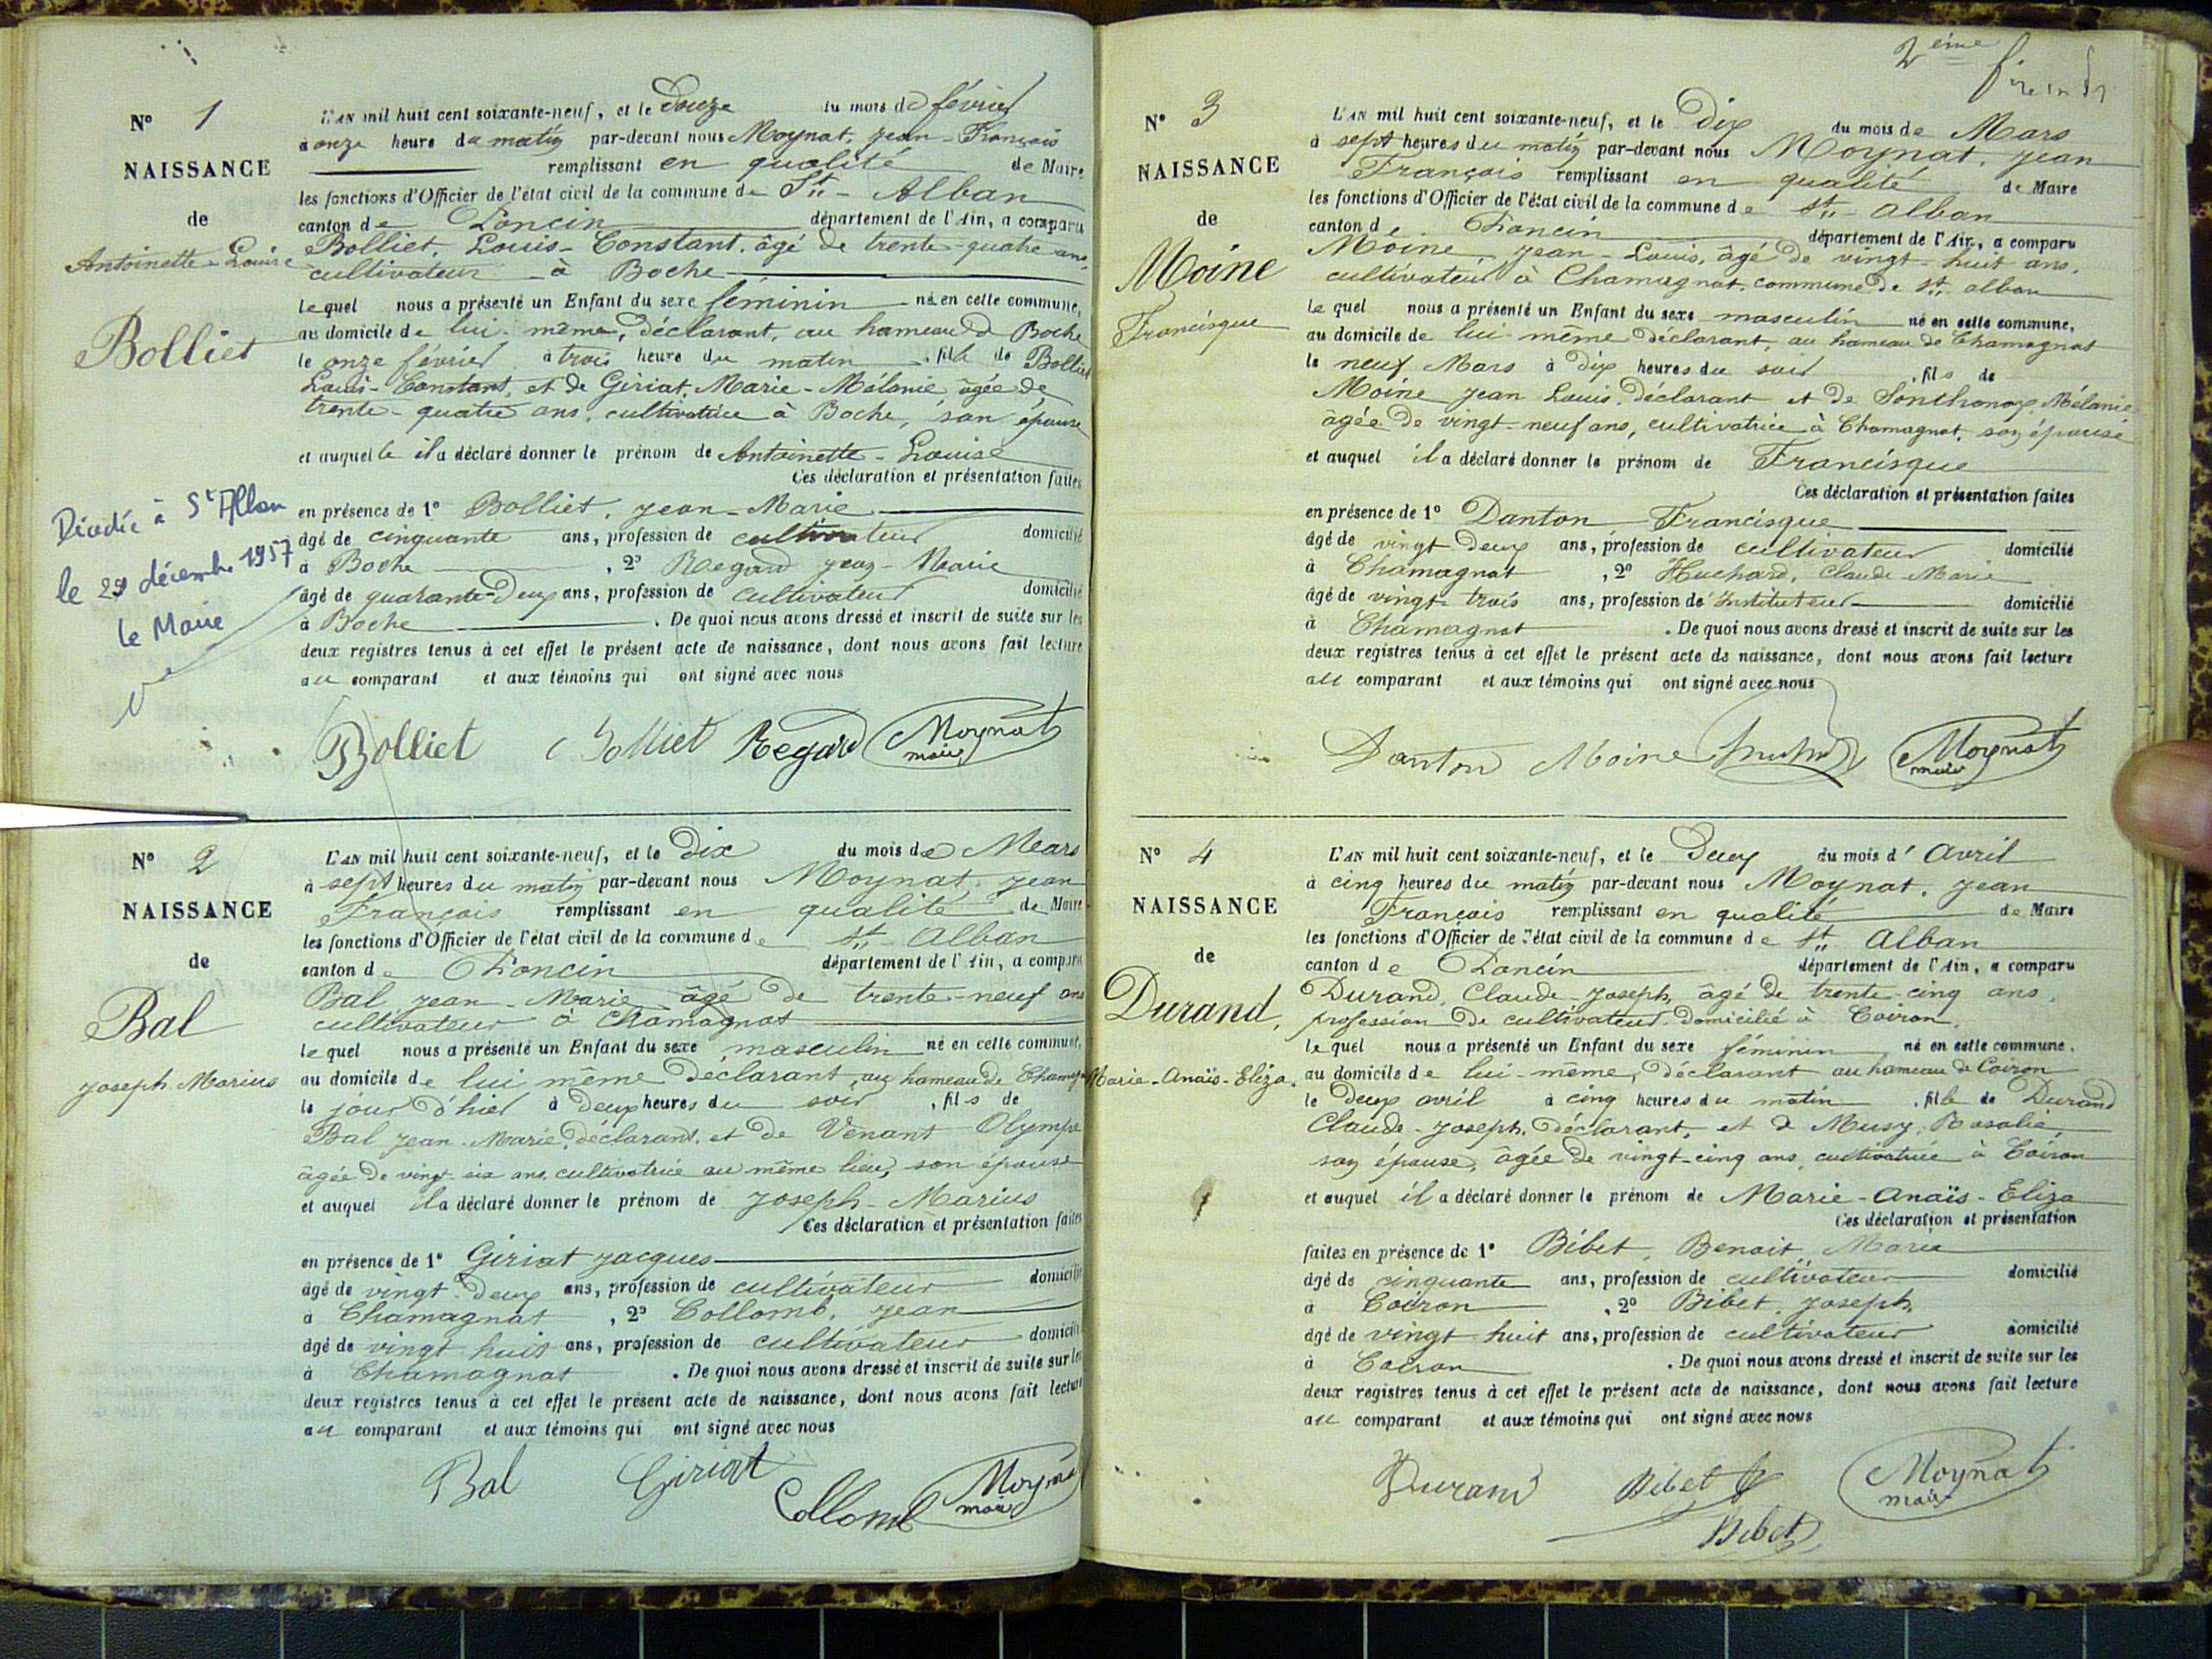 N° 1
NAISSANCE
de
Antoinette-Louise
Bolliet
Décédée à St Alban
le 29 décembre 1957
le Maire
L'AN mil huit cent soixante-neuf, et le douze du mois de février
à onze heure du matin par-devant nous Moynat, Jean-François
remplissant en qualité de Maire
les fonctions d'Officier de l'état civil de la commune de St-Alban
canton de Poncin département de l'Ain, a comparu
Bolliet, Louis-Constant, âgé de trente-quatre ans,
cultivateur à Boche
lequel nous a présenté un Enfant du sexe féminin né en cette commune,
au domicile de lui-même, déclarant, au hameau de Boche
le onze février à trois heure du matin, fille de Bolliet
Louis-Constant, et de Giriat, Marie-Mélanie âgée de
trente-quatre ans, cultivatrice à Boche, son épouse
et auquelle il a déclaré donner le prénom de Antoinette-Louise
Ces déclaration et présentation faites
en présence de 1° Bolliet, Jean-Marie
âgé de cinquante ans, profession de cultivateur domicilié
à Boche, 2° Regard Jean-Marie
âgé de quarante-deux ans, profession de cultivateur domicilié
à Boche. De quoi nous avons dressé et inscrit de suite sur les
deux registres tenus à cet effet le présent acte de naissance, dont nous avons fait lecture
au comparant et aux témoins qui ont signé avec nous
Bolliet Bolliet Regard Moynat
maire
N° 2
NAISSANCE
de
Bal
Joseph-Marius
L'AN mil huit cent soixante-neuf, et le dix du mois de Mars
à sept heures du matin par-devant nous Moynat, Jean
François remplissant en qualité de Maire
les fonctions d'Officier de l'état civil de la commune de St-Alban
canton de Poncin département de l'Ain, a comparu
Bal Jean-Marie âgé de trente-neuf ans
cultivateur à Chamagnat
lequel nous a présenté un Enfant du sexe masculin né en cette commune,
au domicile de lui même déclarant, au hameau de Chamagnat
le jour d'hier à deux heures du soir, fils de
Bal Jean-Marie, déclarant, et de Venant Olympe
âgée de vingt-six ans, cultivatrice au même lieu, son épouse
et auquel il a déclaré donner le prénom de Joseph-Marius
Ces déclaration et présentation faites
en présence de 1° Giriat Jacques
âgé de vingt-deux ans, profession de cultivateur domicilié
à Chamagnat, 2° Collomb, Jean
âgé de vingt huit ans, profession de cultivateur domicilié
à Chamagnat. De quoi nous avons dressé et inscrit de suite sur les
deux registres tenus à cet effet le présent acte de naissance, dont nous avons fait lecture
au comparant et aux témoins qui ont signé avec nous
Bal Giriat Collomb Moynat
maire
2ème
N° 3
NAISSANCE
de
Moine
Francisque
L'AN mil huit cent soixante-neuf, et le dix du mois de Mars
à sept heures du matin par-devant nous Moynat, Jean
François remplissant en qualité de Maire
les fonctions d'Officier de l'état civil de la commune de St-Alban
canton de Poncin département de l'Ain, a comparu
Moine Jean-Louis, âgé de vingt-huit ans,
cultivateur à Chamagnat, commune de St-Alban
lequel nous a présenté un Enfant du sexe masculin né en cette commune,
au domicile de lui-même déclarant, au hameau de Chamagnat
le neuf Mars à dix heures du soir, fils de
Moine Jean Louis, déclarant et de Sonthonax, Mélanie
âgée de vingt-neuf ans, cultivatrice à Chamagnat, son épouse
et auquel il a déclaré donner le prénom de Francisque
Ces déclaration et présentation faites
en présence de 1° Danton Francisque
âgé de vingt-deux ans, profession de cultivateur domicilié
à Chamagnat, 2° Huchard, Claude-Marie
âgé de vingt-trois ans, profession de Instituteur domicilié
à Chamagnat. De quoi nous avons dressé et inscrit de suite sur les
deux registres tenus à cet effet le présent acte de naissance, dont nous avons fait lecture
au comparant et aux témoins qui ont signé avec nous
Danton Moine Moynat
maire
N° 4
NAISSANCE
de
Durand,
Marie-Anaïs-Eliza.
L'AN mil huit cent soixante-neuf, et le deux du mois d'Avril
à cinq heures du matin par-devant nous Moynat, Jean
François remplissant en qualité de Maire
les fonctions d'Officier de l'état civil de la commune de St Alban
canton de Poncin département de l'Ain, a comparu
Durand, Claude-Joseph, âgé de trente-cinq ans,
profession de cultivateur domicilié à Coiron,
lequel nous a présenté un Enfant du sexe féminin né en cette commune,
au domicile de lui-même, déclarant au hameau de Coiron
le deux avril à cinq heures du matin, fille de Durand
Claude-Joseph, déclarant, et de Musy, Rosalie,
son épouse, âgée de vingt-cinq ans, cultivatrice à Coiron
et auquel il a déclaré donner le prénom de Marie-Anaïs-Eliza
Ces déclaration et présentation
faites en présence de 1° Bibet, Benoit Marie
âgé de cinquante ans, profession de cultivateur domicilié
à Coiron, 2° Bibet, Joseph,
âgé de vingt-huit ans, profession de cultivateur domicilié
à Coiron. De quoi nous avons dressé et inscrit de suite sur les
deux registres tenus à cet effet le présent acte de naissance, dont nous avons fait lecture
au comparant et aux témoins qui ont signé avec nous
Durand Bibet Moynat
maire
Bibet